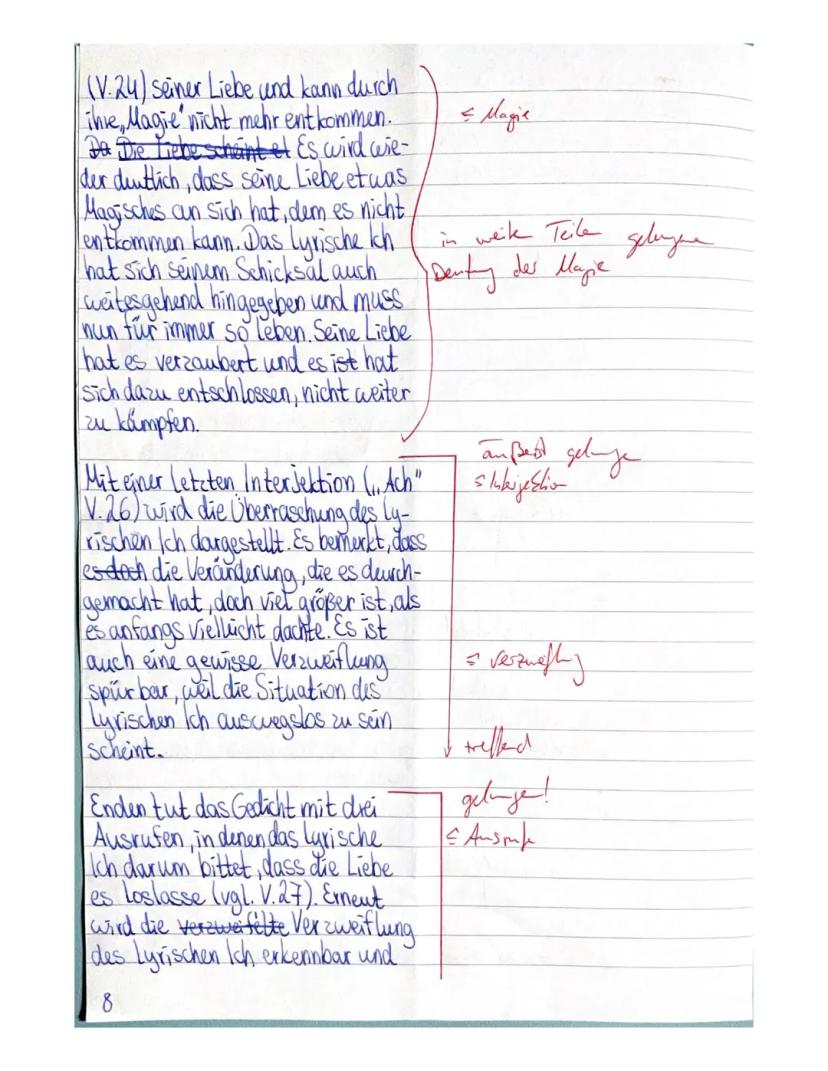 (V.24) seiner Liebe und kann durch
ihre „Magie" nicht mehr entkommen.
Da Die Liebe scheint et Es wird wie-
der deutlich, dass seine Liebe etwas
Magisches an sich hat, dem es nicht
entkommen kann. Das lyrische Ich
hat sich seinem Schicksal auch
weitesgehend hingegeben und muss
nun für immer so leben. Seine Liebe
hat es verzaubert und es ist hat
sich dazu entschlossen, nicht weiter
zu kämpfen.
Magie
in weiten Teilen gelungene
Deutung der Magie
Mit einer letzten Interjektion („Ach"
V.26) wird die Überraschung des ly-
rischen Ich dargestellt. Es bemerkt, dass
es doch die Veränderung, die es durch-
gemacht hat, doch viel größer ist, als
es anfangs vielleicht dachte. Es ist
auch eine gewisse Verzweiflung
spürbar, weil die Situation des
lyrischen Ich ausweglos zu sein
scheint.
äußerst gelungen
Interjektion
Verzweiflung
treffend
Enden tut das Gedicht mit drei
Ausrufen, in denen das lyrische
Ich darum bittet, dass die Liebe
es loslasse (vgl. V.27). Erneut
wird die verzweifelte Verzweiflung
des lyrischen Ich erkennbar und
gelungen!
Ausrufe
8